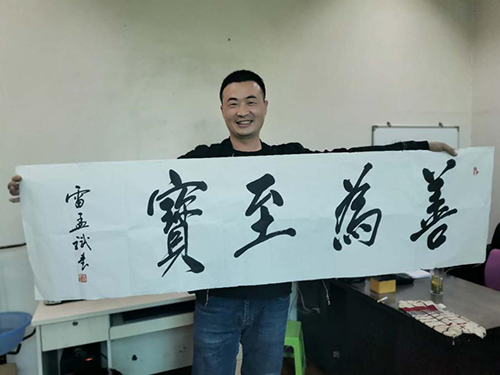 善為至寶
雷孟斌书